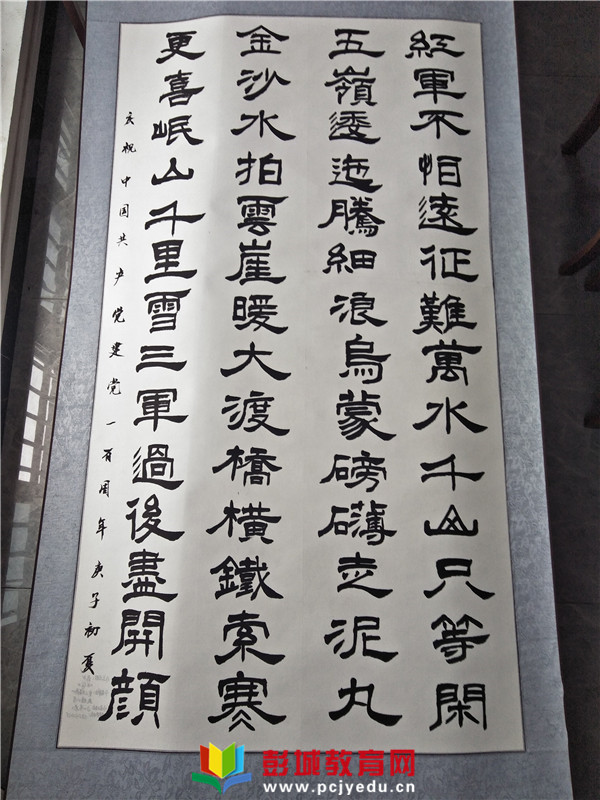 紅軍不怕遠征難萬水千山只等閑
五嶺逶迤騰細浪烏蒙磅礴走泥丸
金沙水拍雲崖暖大渡橋橫鐵索寒
更喜岷山千里雪三軍過後盡開顔
庆祝中国共产党建党一百周年 庚子初夏
彭城教育网
www.pcjyedu.cn